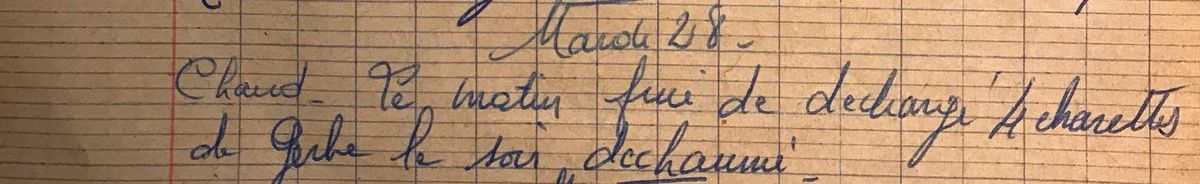 Mardi 28 -
Chaud - Le matin fini de dechargé 4 charettes
de Gerbe le soir dechaumé -